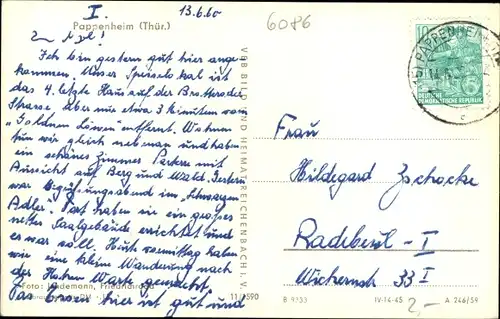 I.
13.6.60
6086
Pappenheim (Thür.)
Ich bin gestern gut hier ange
kommen. Unser Speiselokal ist
das 4. letzte Haus auf der Brotteroder
Strasse aber nur etwa 3 Minuten vom
"Goldnen Löwen" entfernt. Wohnen
tun wir gleich nebenan und haben
ein schönes Zimmer Parterre mit
Aussicht auf Berg und Wald. Gestern
war Begrüßungsabend im "Schwarzen
Adler". Dort haben sie ein großes
nettes Saalgebäude errichtet und
es war voll. Heute vormittag haben
wir eine kleine Wanderung nach
der Hohen Warte gemacht.
Das Essen hier ist gut und
Foto:
11/590
VEB BILD UND HEIMAT REICHENBACH I. V.
10
DEUTSCHE
DEMOKRATISCHE REPUBLIK
PAPPENHEIM
Frau
Hildegard Zschocke
Radebeul - I
Wichernstr. 33 I
B 9333
IV-14-45
2,-
A 246/59